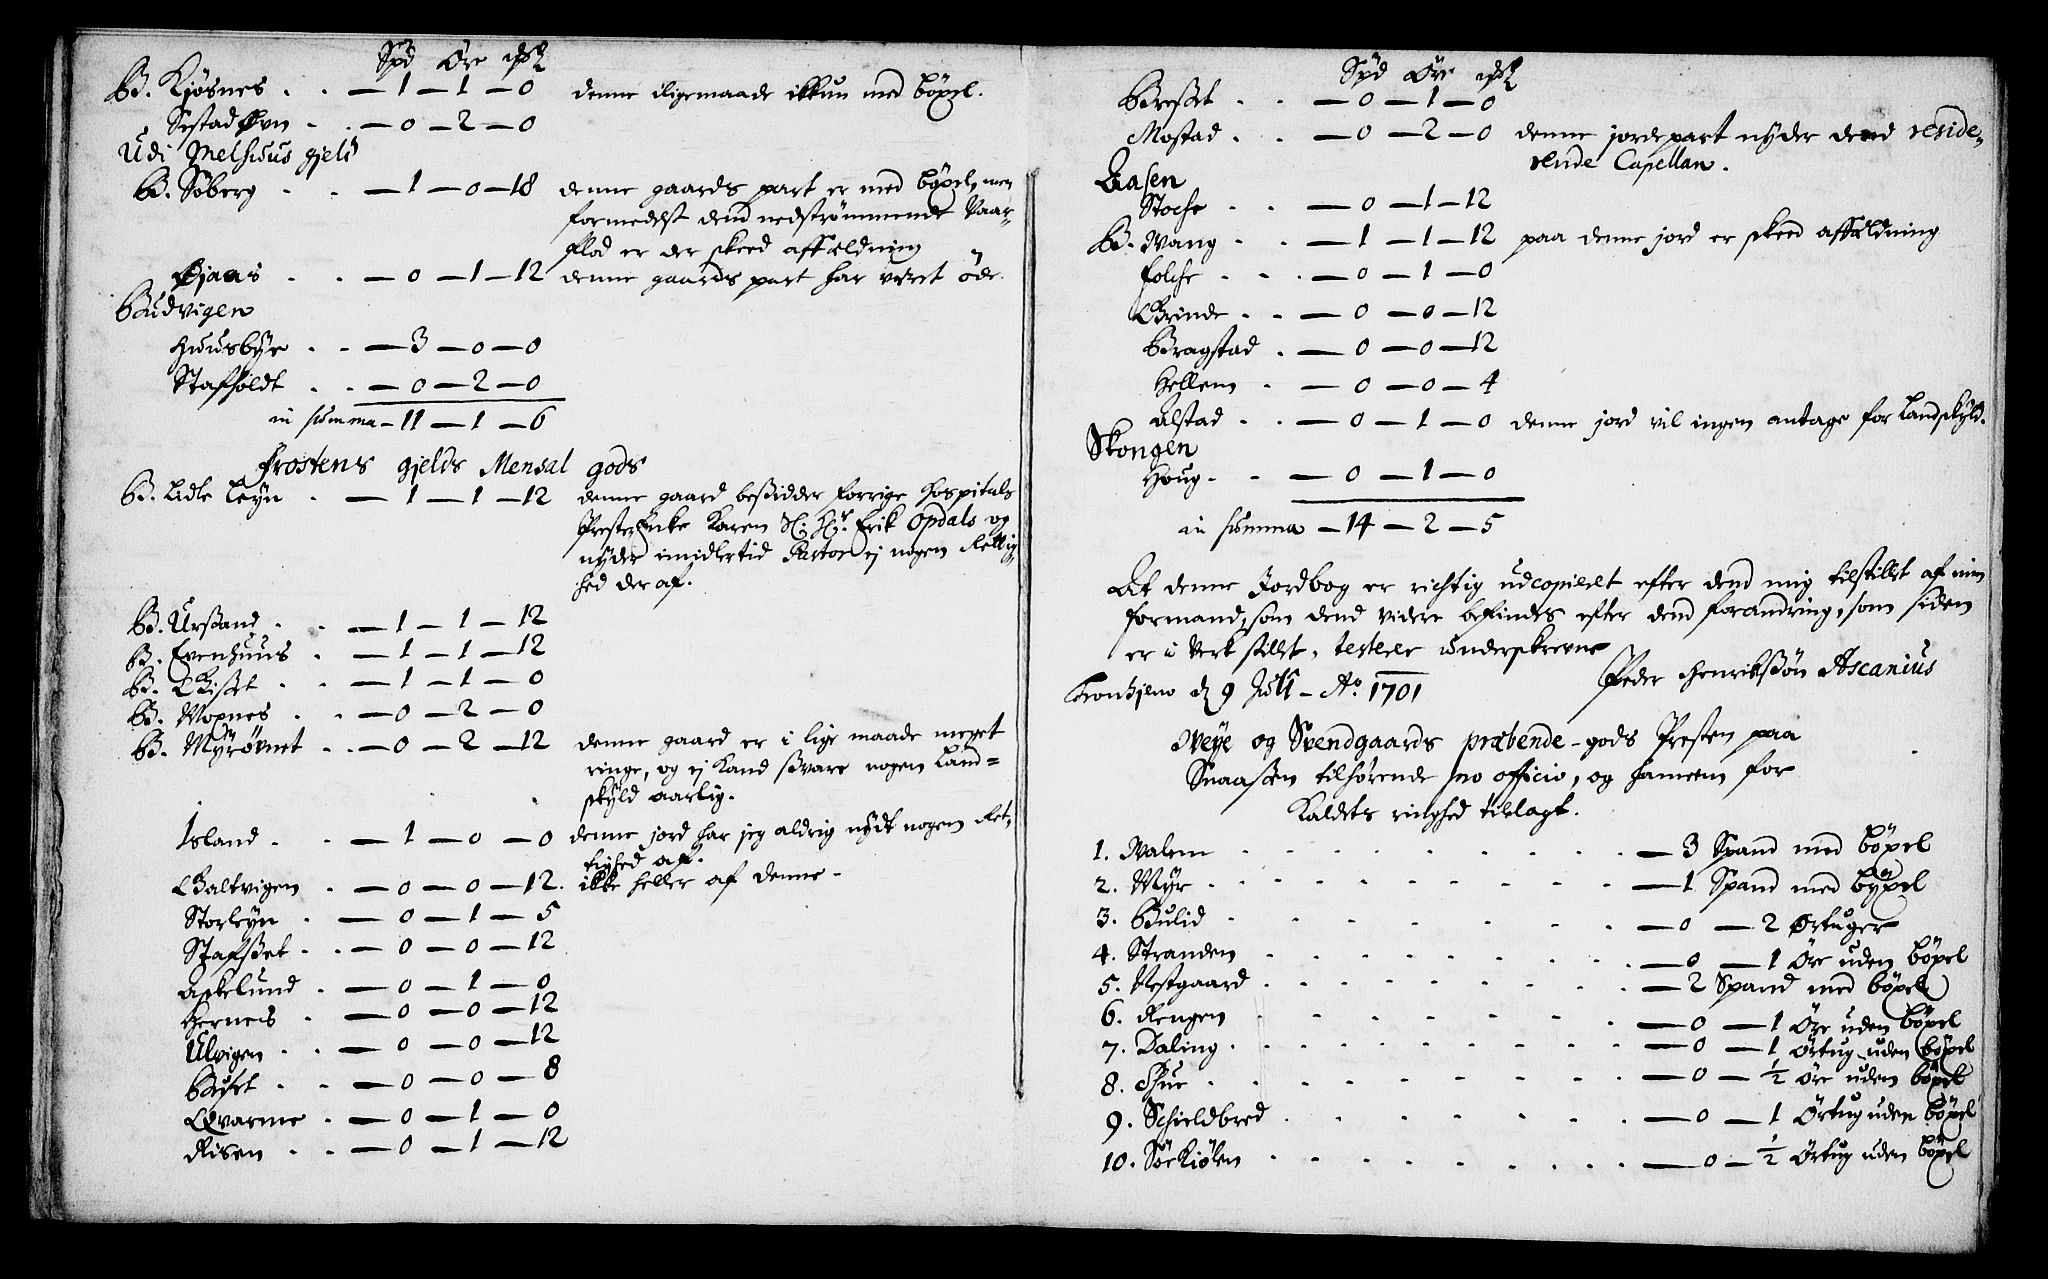 Spd Öre
B. Kjösnes . . — 1 — 1 — 0 denne ligemaade ikkun med böxel.
Sestad Øvn . . — 0 — 2 — 0
Udi Melhuus gield
B. Söberg . . — 1 — 0 — 18 denne gaards part er med böxel, men
formedelst dend nedströmmende Vaar-
flod er der skeed affældning
Øjaas . . — 0 — 1 — 12 denne gaards part har været öde.
Budvigen
Huusbye . . — 3 — 0 — 0
Stafholdt . . — 0 — 2 — 0
in summa — 11 — 1 — 6
Frostens gjelds Mensal gods
B. Lidle Leyn . — 1 — 1 — 12 denne gaard besidder forrige Hospitals
Prests Enke Karen Sl. Hr. Erik Opdals og
nyder imidlertid Pastor ej nogen Rettig-
hed der af.
B. Ursand . . — 1 — 1 — 12
B. Evenhuus . — 1 — 1 — 12
B. . . — 1 — 1 — 0
B. Moxnes . . — 0 — 2 — 0
B. Myrövnet . . — 0 — 2 — 12 denne gaard er i lige maade meget
ringe, og ej kand svare nogen Land=
skyld aarlig.
Island . . — 1 — 0 — 0 denne jord har jeg aldrig nydt nogen Ret-
tighed af.
Galtvigen . — 0 — 0 — 12. ikke heller af denne.
Storleyn . — 0 — 1 — 5
Stafset . . — 0 — 0 — 12
Askelund . — 0 — 1 — 0
Hernes . — 0 — 0 — 12
Ulvigen . . — 0 — 0 — 12
. . — 0 — 0 — 8
Qvarme . — 0 — 1 — 0
Risen . . — 0 — 1 — 12
Spd Öre
. . — 0 — 1 — 0
Mostad . . — 0 — 2 — 0 denne jordepart nyder dend reside-
rende Capellan.
Aasen
Stoche . . — 0 — 1 — 12
B. Vang . . — 1 — 1 — 12 paa denne jord er skeed affældning
Folche . . . — 0 — 1 — 0
Grinde . . — 0 — 0 — 12
Bragstad . — 0 — 0 — 12
Hellem . — 0 — 0 — 4
Alstad . . — 0 — 1 — 0 denne jord vil ingen antage for Landskyld.
Skongen
Houg . . — 0 — 1 — 0
in summa — 14 — 2 — 5
At denne Jordbog er richtig udcopieret efter dend mig tilstillet af min
formand, som dend videre befindes efter dend forandring, som siden
er i verk stillet, testerer underskrevne
Tronhjem d. 9 Julii — Ao. 1701 Peder Henrikssön Ascanius
Veye og Svendgaards præbende-gods Presten paa
Snaasen tilhörende pro officio, og hannem for
Kaldets ringhed tillagt.
1. Valem . . . . . . . — 3 Spand med böxel
2. Myr . . . . . . . — 1 Spand med böxel
3. Bulid . . . . . . . — 0 — 2 Örtuger
4. Stranden . . . . . . . — 0 — 1 Öre uden böxel
5. Vestgaard . . . . . . . — 2 Spand med böxel
6. Rengen . . . . . . — 0 — 1 Öre uden böxel
7. Daling . . . . . . . — 0 — 1 Örtug uden böxel
8. . . . . . . . — 0 — ½ öre uden böxel
9. Schieldbred . . . . . . — 0 — 1 Örtug uden böxel
10. Sörkiölen . . . . . . . — 0 — ½ Örtug uden böxel